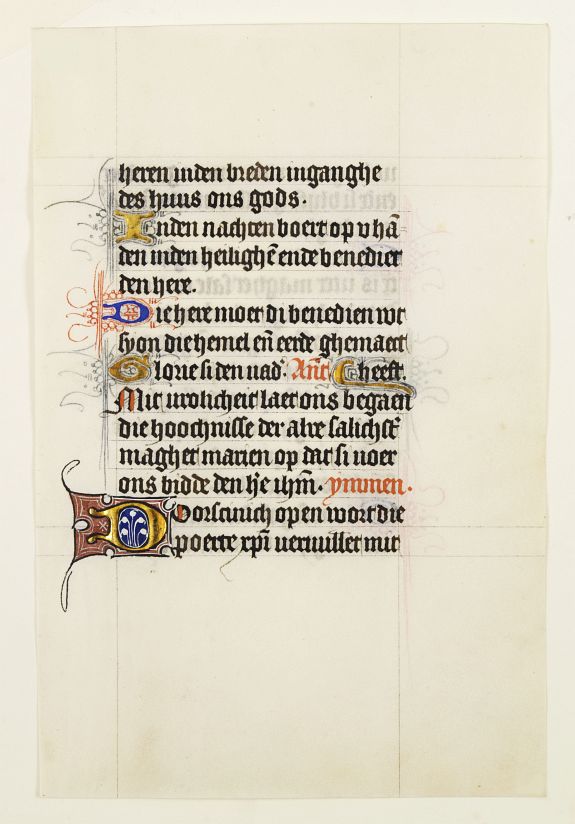 heren inden breden inganghe
des huus ons gods.
Inden nachten boert op v hā
den inden heilighē ende benediet
den here.
Die here moet di benedien wt
syon die hemel eñ eerde ghemaect
Glorie si den vad'. Añt Gheest.
Mit vrolicheit laet ons begaen
die hoochnisse der alre salichst'
maghet marien op dat si voer
ons bidde den h'e ihm̄. ymmen.
Doerscinich open wort die
poerte xpi vervullet mit